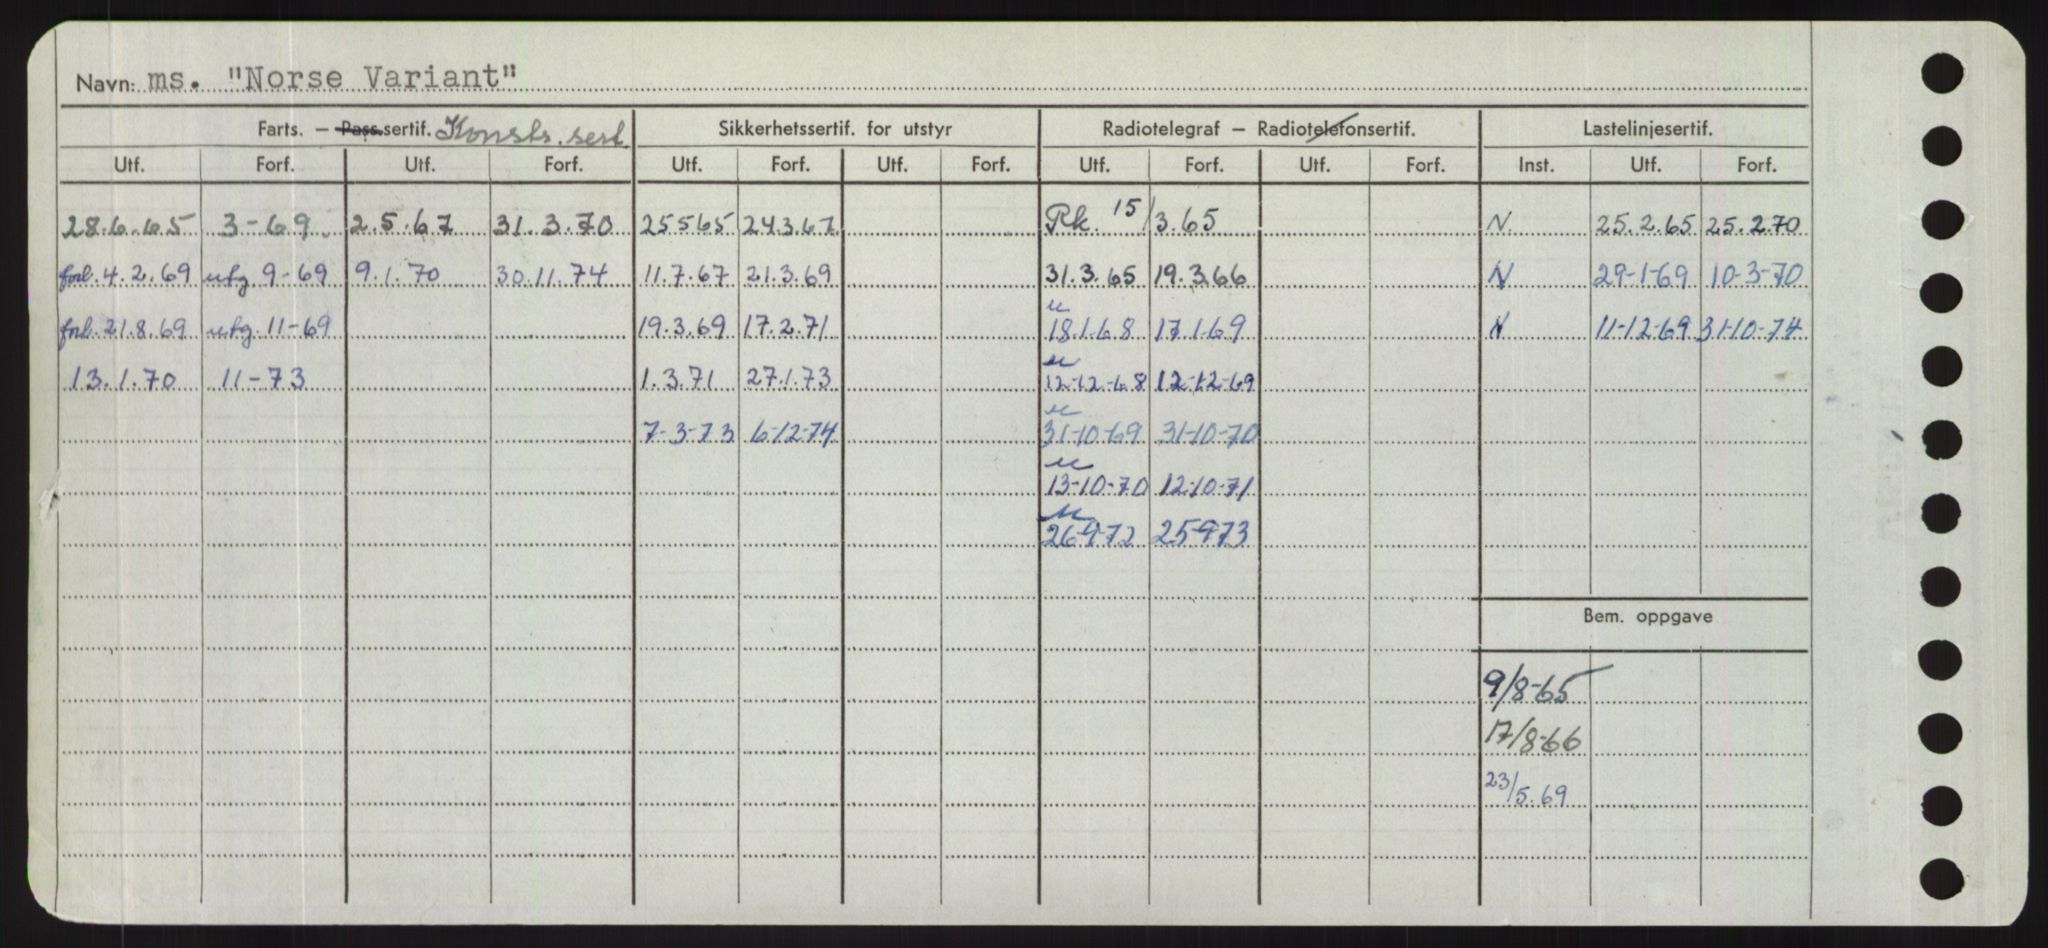 Navn: ms. "Norse Variant"
Farts. — Pass.sertif. Konstr. sert. Sikkerhetssertif. for utstyr Radiotelegraf — Radiotelefonsertif. Lastelinjesertif.
Utf. Forf. Utf. Forf. Utf. Forf. Utf. Forf. Utf. Forf. Utf. Forf. Inst. Utf. Forf.
28.6.65 3-69. 2.5.67 31.3.70 25565 24.3.67 Rk. 15/3.65 N. 25.2.65 25.2.70
forl. 4.2.69 utg 9-69 9.1.70 30.11.74 11.7.67 21.3.69 31.3.65 19.3.66 N 29-1-69 10-3-70
forl. 21.8.69 utg. 11-69 19.3.69 17.2.71 18.1-68 17.1-69 N 11-12-69 31-10-74
13.1.70 11-73 1.3.71 27.1.73 12-12-68 12-12-69
7-3-73 6-12-74 31-10-69 31-10-70
13-10-70 12-10-71
26-9-72 25-9-73
Bem. oppgave
9/8-65
17/8-66
23/5.69